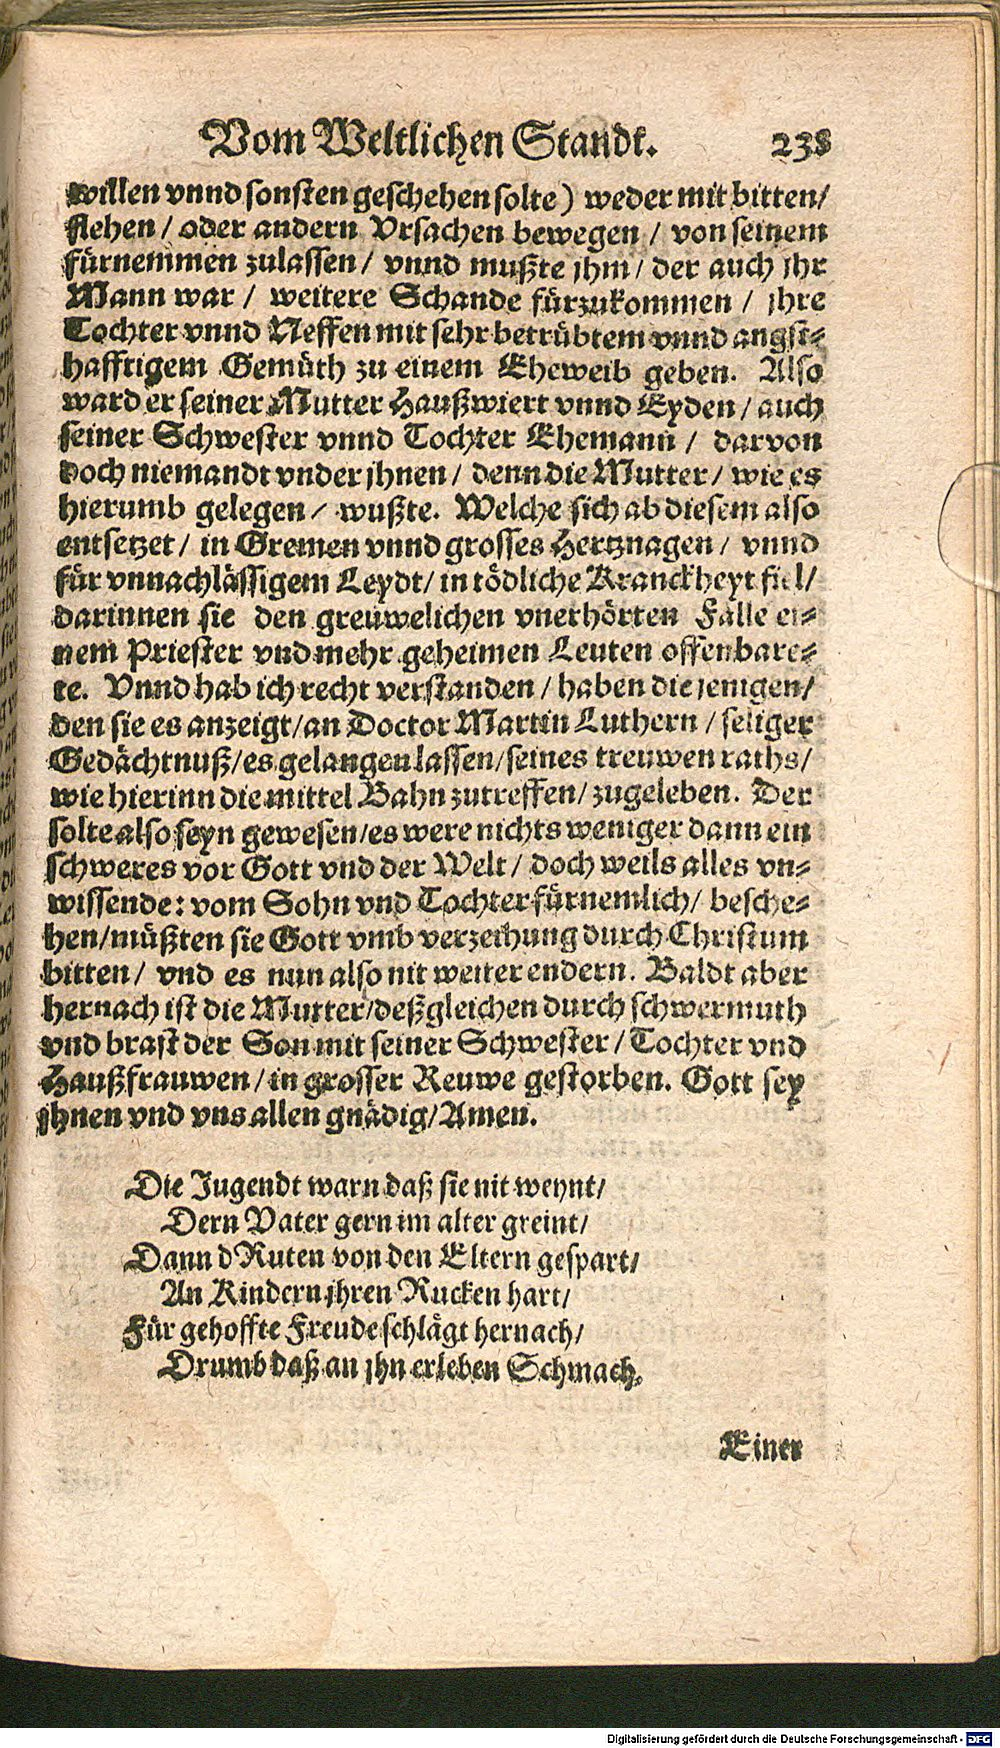 Vom Weltlichen Standt. 238
willen vnnd sonsten geschehen solte) weder mit bitten/
flehen / oder andern Vrsachen bewegen / von seinem
fürnemmen zulassen / vnnd mußte jhm / der auch jhr
Mann war / weitere Schande fürzukommen / jhre
Tochter vnnd Neffen mit sehr betrübtem vnnd angst-
hafftigem Gemüth zu einem Eheweib geben. Also
ward er seiner Mutter Haußwiert vnnd Eyden / auch
seiner Schwester vnnd Tochter Ehemann / darvon
doch niemandt vnder jhnen / denn die Mutter / wie es
hierumb gelegen / wußte. Welche sich ab diesem also
entsetzet / in Gremen vnnd grosses Hertznagen / vnnd
für vnnachlässigem Leydt / in tödliche Kranckheyt fiel/
darinnen sie den greuwelichen vnerhörten Falle ei-
nem Priester vnd mehr geheimen Leuten offenbare-
te. Vnnd hab ich recht verstanden / haben die jenigen/
den sie es anzeigt/an Doctor Martin Luthern / seliger
Gedächtnuß/es gelangen lassen/seines treuwen raths/
wie hierinn die mittel Bahn zutreffen/ zugeleben. Der
solte also seyn gewesen/es were nichts weniger dann ein
schweres vor Gott vnd der Welt / doch weils alles vn-
wissende: vom Sohn vnd Tochter fürnemlich/ besche-
hen/müßten sie Gott vmb verzeihung durch Christum
bitten/ vnd es nun also nit weiter endern. Baldt aber
hernach ist die Mutter/deßgleichen durch schwermuth
vnd brast der Son mit seiner Schwester / Tochter vnd
Haußfrauwen / in grosser Reuwe gestorben. Gott sey
jhnen vnd vns allen gnädig/Amen.
Die Jugendt warn daß sie nit weynt/
Dern Vater gern im alter greint/
Dann d Ruten von den Eltern gespart/
An Kindern jhren Rucken hart/
Für gehoffte Freude schlägt hernach/
Drumb daß an jhn erleben Schmach.
Einer
Digitalisierung gefördert durch die Deutsche Forschungsgemeinschaft - DFG